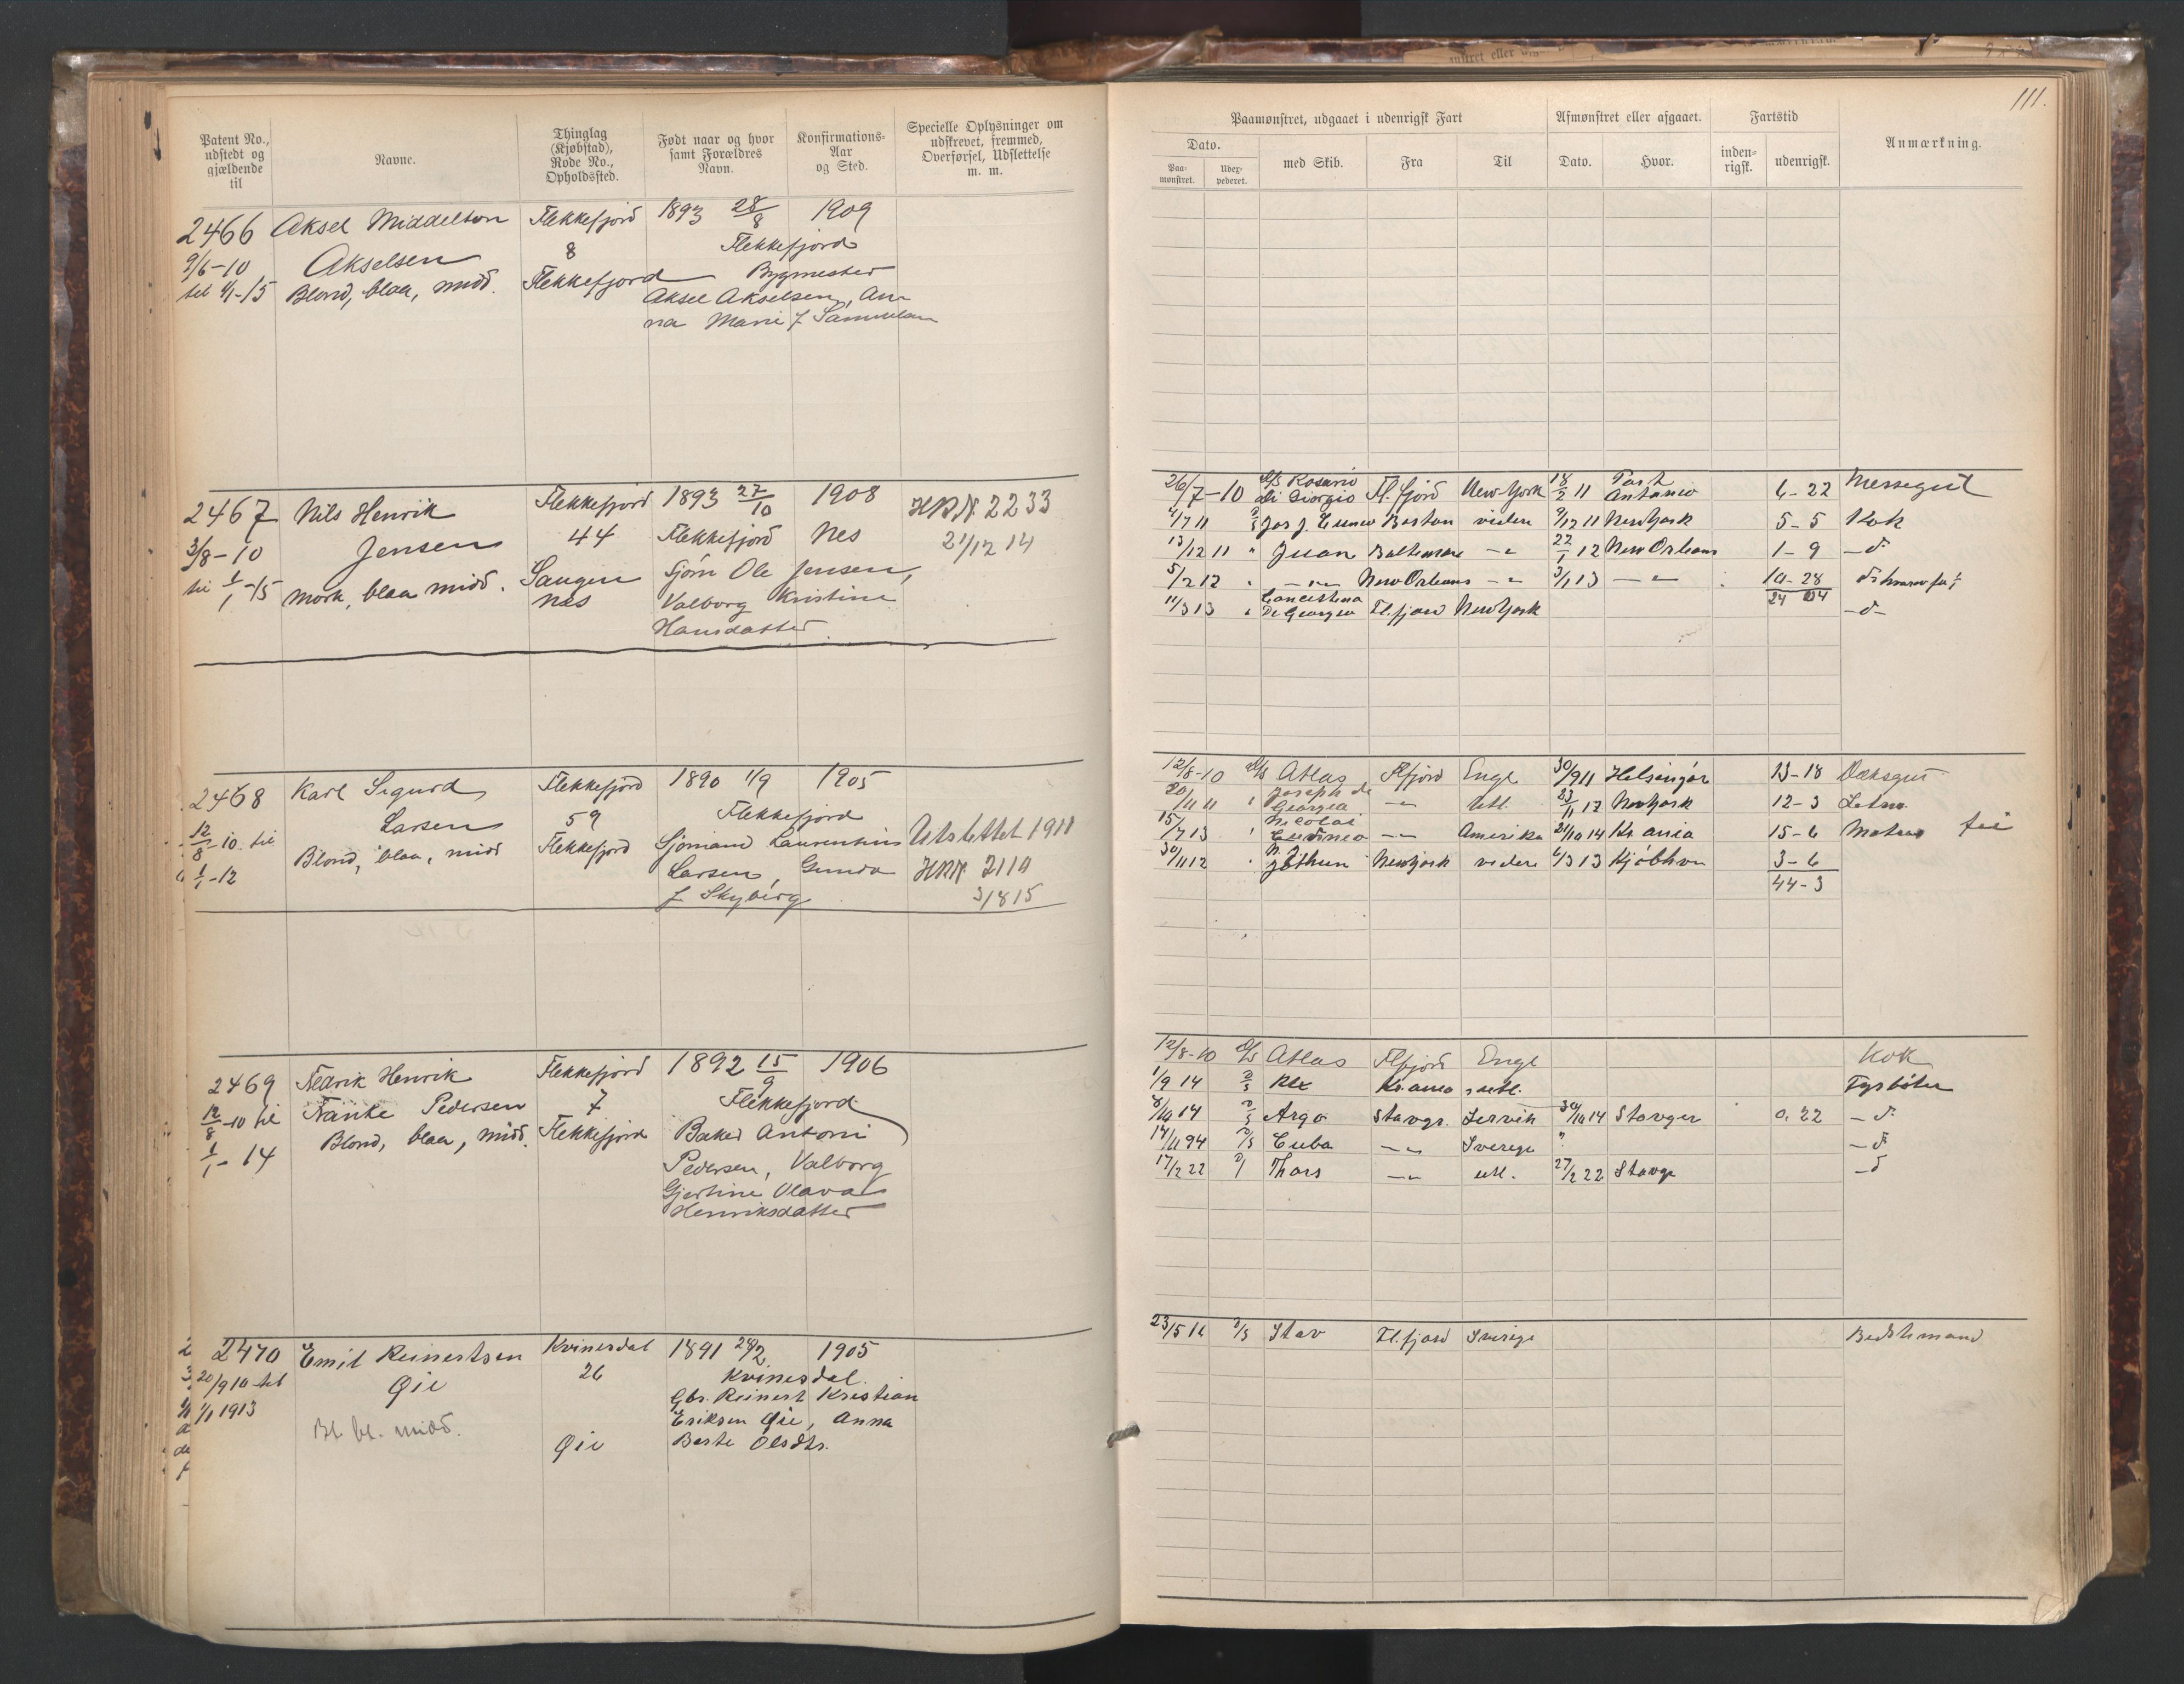 111.
Patent No., udstedt og gjældende til
Navne.
Thinglag (Kjøbstad), Rode No., Opholdssted.
Født naar og hvor samt Forældres Navn.
Konfirmations-Aar og Sted.
Specielle Oplysninger om udskrevet, fremmed, Overførsel, Udslettelse m. m.
Paamønstret, udgaaet i udenrigsk Fart
Afmønstret eller afgaaet.
Fartstid
Anmærkning.
Dato.
Paa-mønstret.
Uder-pederet.
med Skib.
Fra
Til
Dato.
Hvor.
inden-rigsk.
udenrigsk.
2466 Aksel Middelton Flekkefjord 1893 28/8 1909
9/6-10 Akselsen 8 Flekkefjord
til 1/1-15 Blond, blaa, midd. Flekkefjord Bygmester
Aksel Akselsen, An-
na Marie f. Samuelsen
2467 Nils Henrik Flekkefjord 1893 27/10 1908 HRN 2233
3/8-10 Jensen 44 Flekkefjord Nes 21/12 14
til 1/1-15 Mørk, blaa midd. Laugen Sjøm Ole Jensen,
nes Valborg Kristine
Hansdatter
26/7-10 D/S Rosario di Giorgio Fl.fjord New York 18/2 11 Port Antonio 6-22 Messegut
4/7 11 D/S Jos J. Cuneo Boston videre 9/12 11 New York 5-5 Kok
13/12 11 " Juan Baltimore -"- 22/1 12 New Orleans 1-9 -d-
5/2 12 " -"- New Orleans -"- 3/1 13 -"- 10-28
24 04
11/3 13 " Concettina De Georgio Fl.fjord New York -d-
2468 Karl Sigurd Flekkefjord 1890 1/9 1905
12/8-10 til Larsen 59 Flekkefjord
1/1-12 Blond, blaa, midd Flekkefjord Sjømand Laurentius Udslettet 1911
Larsen, Gunda HRN 2110
f. Skyberg 3/8 15
12/8-10 D/S Atlas Flfjord Engl 30/9 11 Helsingør 13-18 Dæksgut
20/11 11 " Joseph di Georgio -"- utl. 23/11 12 New York 12-3 Letm.
15/7 13 " Nicolai Cuneo -"- Amerika 21/10 14 Kr.ania 15-6 Matros
30/11 12 " Jethun New York videre 6/3 13 Kjøbhvn 3-6
44-3
2469 Fredrik Henrik Flekkefjord 1892 15/9 1906
12/8-10 til Tanke Pedersen 7 Flekkefjord
1/1-14 Blond, blaa, midd. Flekkefjord Baker Antoni
Pedersen, Valborg
Gjertine Olava
Henriksdatter
12/8-10 D/S Atlas Flfjord Engl Kok
1/9 14 D/S Rex Kr.ania utl. Fyrbøter
8/10 14 D/S Argo Stavgr. Lervik 30/10 14 Stavger 0.22 -d-
14/11 94 D/S Cuba -"- Sverige " -d-
17/2 22 D/ Thors -"- utl. 27/2 22 Stavgr -d-
2470 Emil Reinertsen Kvinesdal 1891 24/2 1905
20/9 10 til Øie 26 Kvinesdal.
1/1 1913 Gbr. Reinert Kristian
Bl. bl. midd. Eriksen Øie, Anna
Øie Berte Olsdtr.
23/5 12 D/S Stav Fl.fjord Sverige Bedstemand